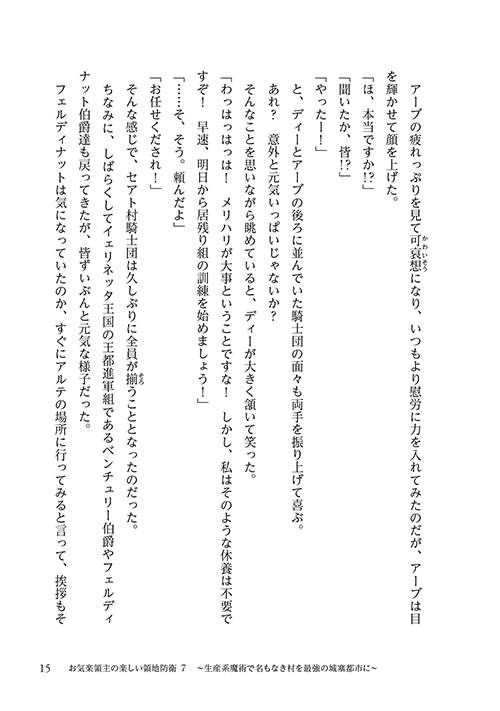 アーブの疲れっぷりを見て可哀想になり、いつもより慰労に力を入れてみたのだが、アーブは目
かわいそう
を輝かせて顔を上げた。
「ほ、本当ですか!?」
「聞いたか、皆!?」
「やったー！」
と、ディーとアーブの後ろに並んでいた騎士団の面々も両手を振り上げて喜ぶ。
あれ？　意外と元気いっぱいじゃないか？
そんなことを思いながら眺めていると、ディーが大きく頷いて笑った。
「わっはっはっは！　メリハリが大事ということですな！　しかし、私はそのような休養は不要で
すぞ！　早速、明日から居残り組の訓練を始めましょう！」
「……そ、そう。頼んだよ」
「お任せくだされ！」
そんな感じで、セアト村騎士団は久しぶりに全員が揃うこととなったのだった。
そろ
ちなみに、しばらくしてイェリネッタ王国の王都進軍組であるベンチュリー伯爵やフェルディ
ナット伯爵達も戻ってきたが、皆ずいぶんと元気な様子だった。
フェルディナットは気になっていたのか、すぐにアルテの場所に行ってみると言って、挨拶もそ
15　お気楽領主の楽しい領地防衛 7　～生産系魔術で名もなき村を最強の城塞都市に～